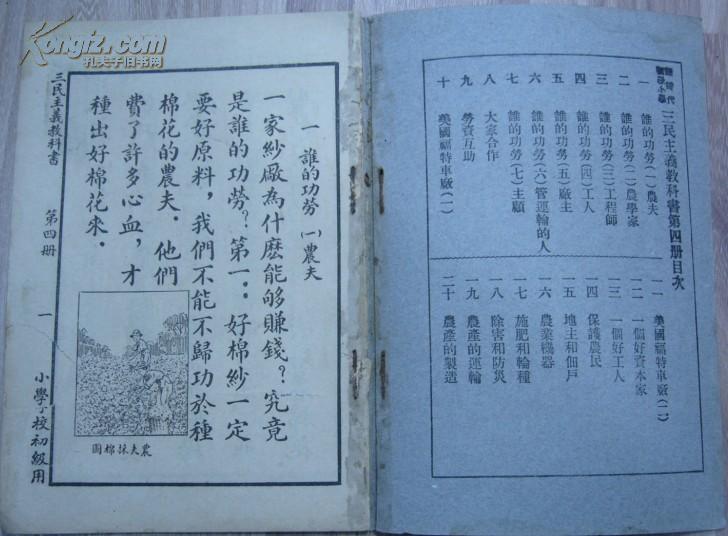 Kongfz.com
孔夫子旧书网
新時代
三民主義教科書第四册目次
一 誰的功勞(一)農夫
二 誰的功勞(二)農學家
三 誰的功勞(三)工程師
四 誰的功勞(四)工人
五 誰的功勞(五)廠主
六 誰的功勞(六)管運輸的人
七 誰的功勞(七)主顧
八 大家合作
九 勞資互助
十 美國福特車廠(一)
一一 美國福特車廠(二)
一二 一個好資本家
一三 一個好工人
一四 保護農民
一五 地主和佃戶
一六 農業機器
一七 施肥和輪種
一八 除害和防災
一九 農產的運輸
二十 農產的製造
一 誰的功勞 (一)農夫
一家紗廠為什麽能够賺錢?究竟
是誰的功勞?第一:好棉紗一定
要好原料,我們不能不歸功於種
棉花的農夫.他們
費了許多心血,才
種出好棉花來.
農夫採棉圖
三民主義教科書 第四册 一 小學校初級用